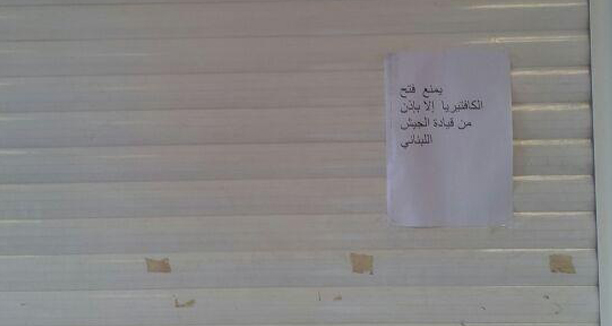 يمنع فتح
الكافتيريا إلا بإذن
من قيادة الجيش
اللبناني